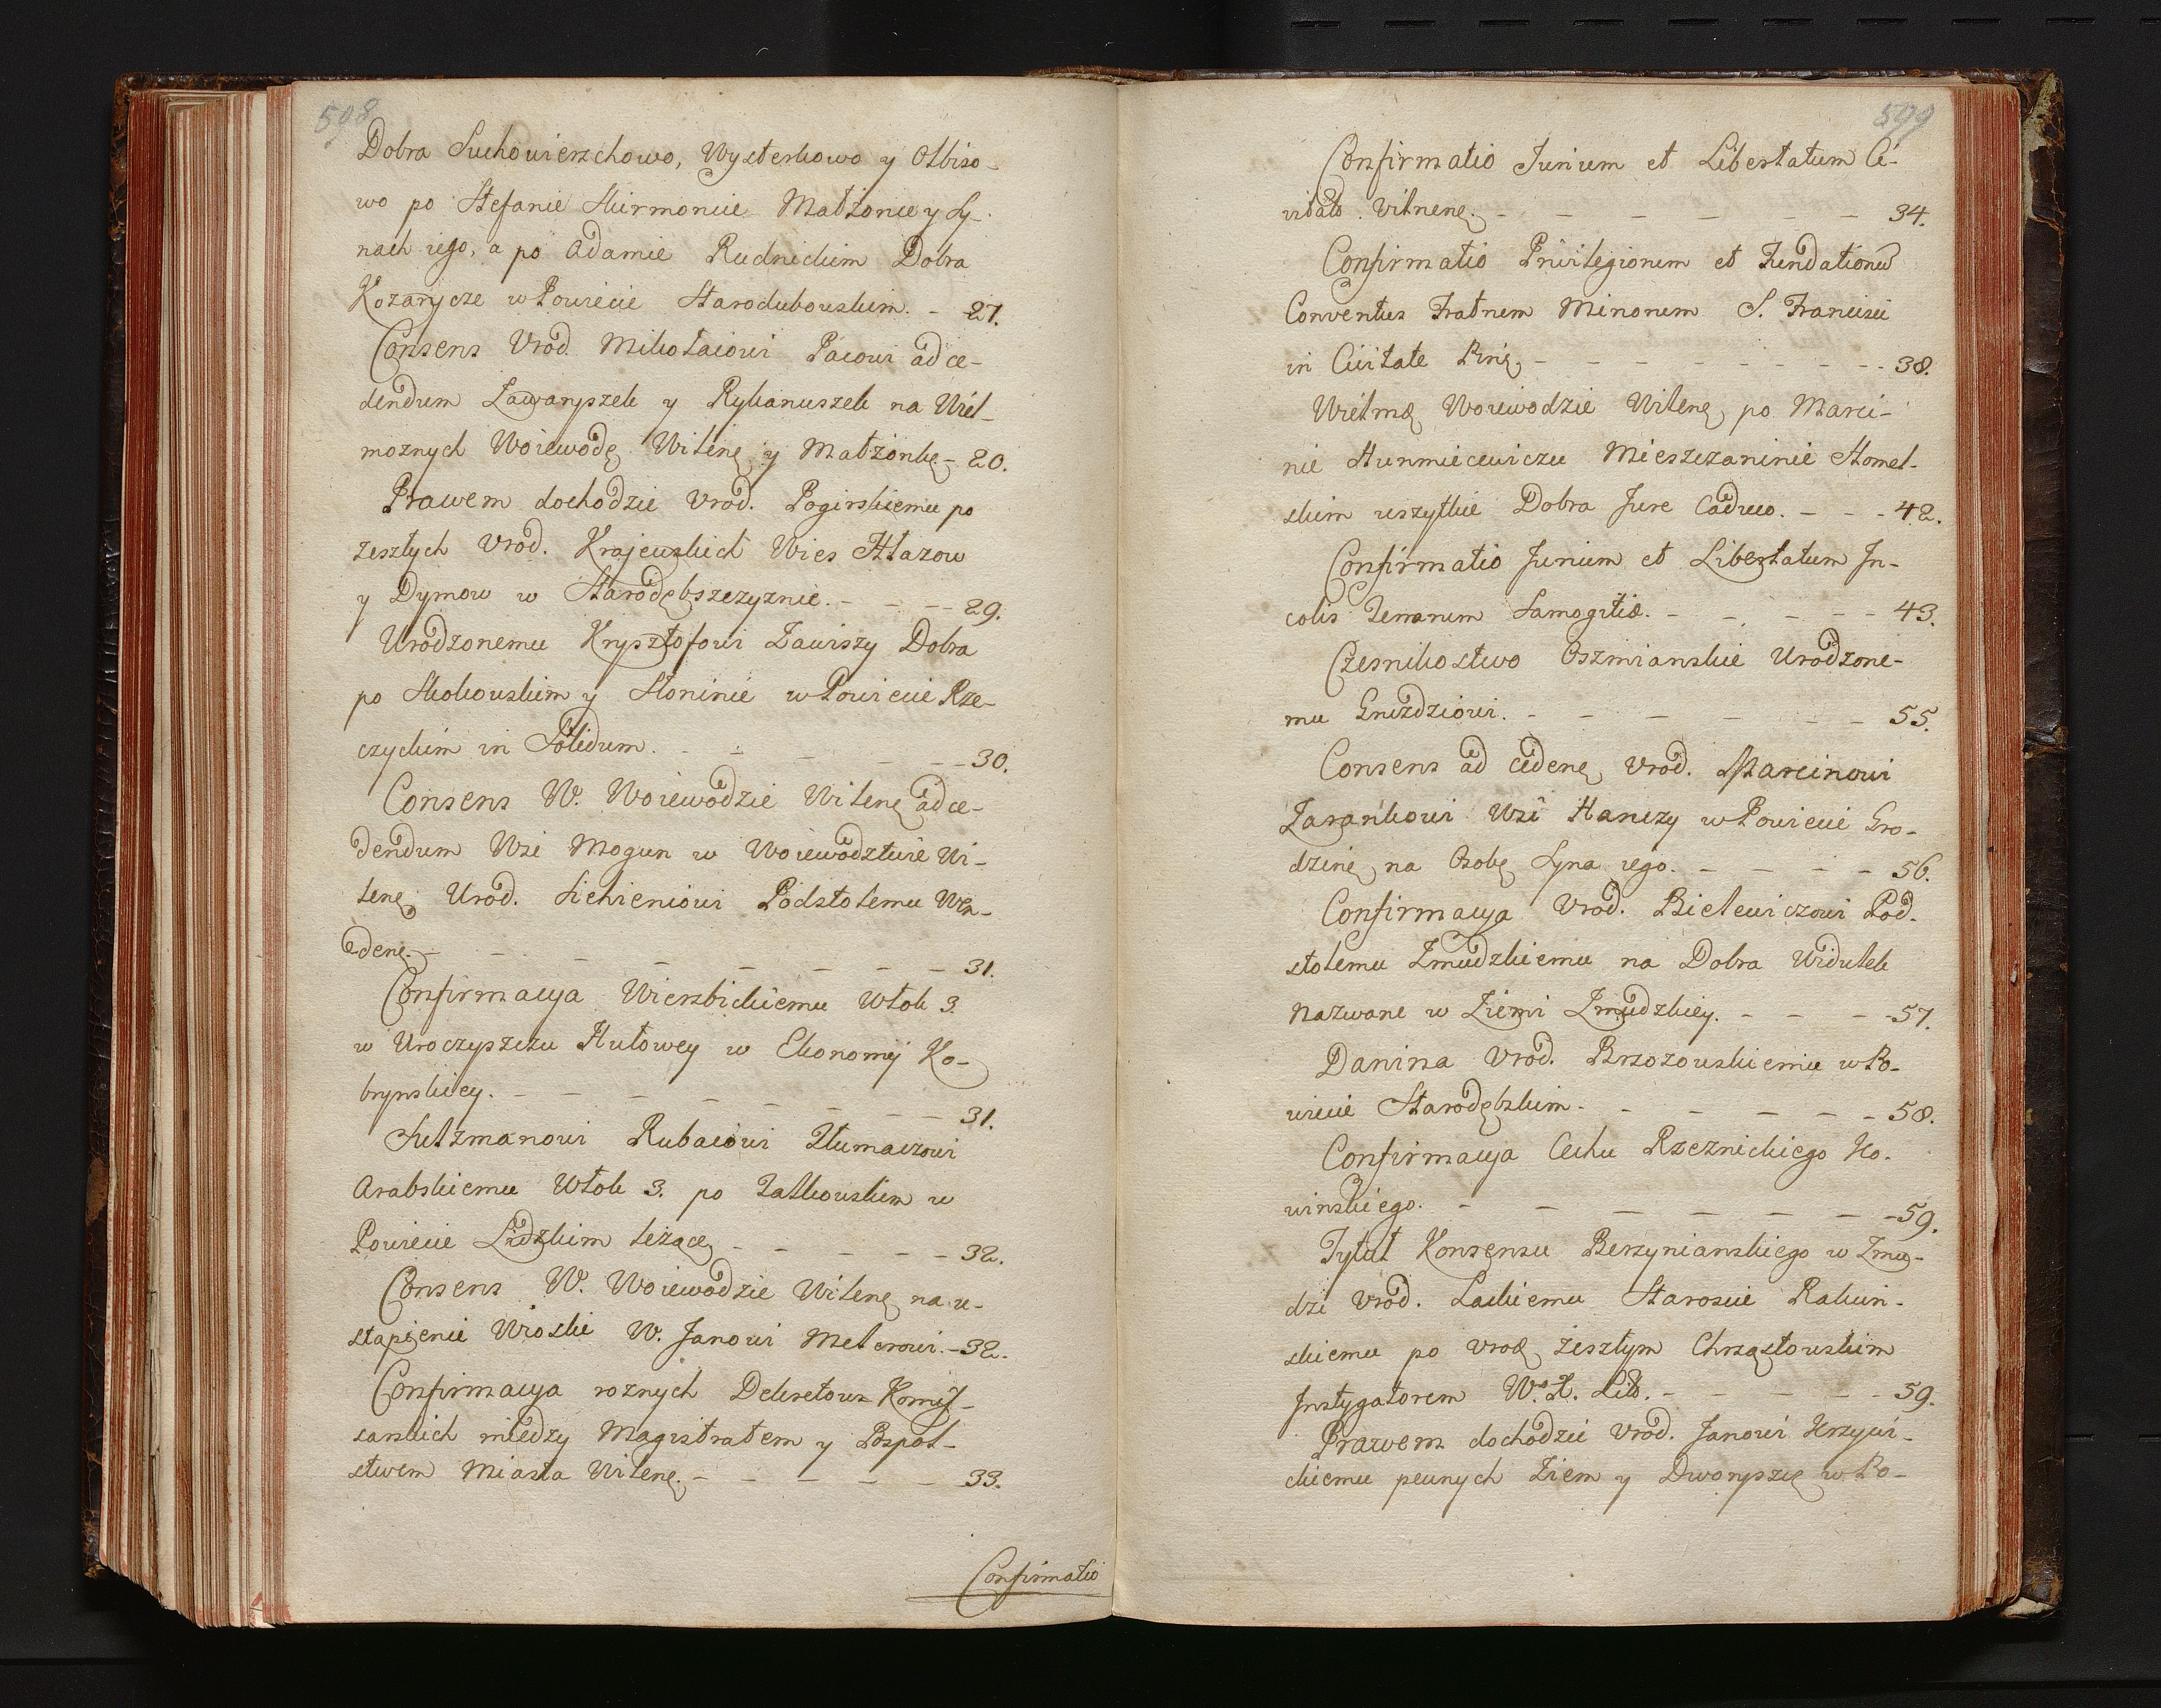 598
Dobra Suchowierzchowo, Wysterkowo y Olbiso-
wo po Stefanie Skirmoncie Małżonce y Sy-
nach iego, a po Adamie Rudnickim Dobra
Kozarycze w Powiecie Starodubowskim. - 27.
Consens Urod. Mikołaiowi Pacowi ad ce-
dendum Ławaryszek y Rykanuszek na Wiel-
moznych Woiewodę Wilenę y Małżonkę - 28.
Prawem dochodzic Urod. Pogirskiemu po
zeszłych Urod. Krajewskich Wies Hłazow
y Dymow w Starodębszczyznie. - - - 29.
Urodzonemu Krysztofowi Zawiszy Dobra
po Skokouskim y Słoninie w Powiecie Rze-
czyckim in Solidum. - - - - - 30.
Consens W. Woiewodzie Wilenę ad ce-
dendum Wsi Mogun w Woiewodztwie Wi-
lenę Urod. Siehieniowi Podstolemu Wen-
denę. - - - - - - - 31.
Confirmacya Wierzbickiemu Włok 3.
w Uroczyszczu Hutowey w Ekonomij Ko-
brynskiey. - - - - - - - 31.
Sulzmanowi Rubaiowi Tłumaczowi
Arabskiemu Włok 3. po Zatkouskim w
Powiecie Lidzkim leżącę - - - - - 32.
Consens W. Woiewodzie Wilenę na u-
stąpienie Wioski W. Janowi Melerowi. - 32.
Confirmacya roznych Dekretow Komis-
sarskich między Magistratem y Pospol-
stwem Miasta Wilenę. - - - - - 33.
Confirmatio
599
Confirmatio Jurium et Libertatum Ci-
vitatis Vilnenę. - - - - - - 34.
Confirmatio Privilegiorum et Fundationũ
Conventus Fratrum Minorum S. Francisci
in Civitate Pinę - - - - - - - - 38.
Wielmę Woiewodzie Wilenę po Marci-
nie Hunmiecewiczu Mieszczaninie Homel-
skim wszytkie Dobra Jure Caduco. - - - 42.
Confirmatio Jurium et Libertatum In-
colis Terrarum Samogitiæ. - - - - - 43.
Czesnikostwo Oszmianskie Urodzone-
mu Gnizdziowi. - - - - - - 55.
Consens ad cedenę Urod. Marcinowi
Zarankowi Wsi Hanczy w Powiecie Gro-
dzinę na Osobę Syna iego. - - - - - 56.
Confirmacya Urod. Bielewiczowi Pod-
stolemu Zmudzkiemu na Dobra Widukle
Nazwane w Ziemi Zmudzkiey. - - - - 57.
Danina Urod. Brzozouskiemu w Po-
wiecie Starodębskim. - - - - - - 58.
Confirmacya Cechu Rzeznickiego Ko-
winskiego. - - - - - - - 59.
Tytuł Konsensu Berzynianskiego w Zmu-
dzi Urod. Łackiemu Staroscie Rakun-
skiemu po Urodę zeszłym Chrząstouskim
Instygatorem W. X. Lit. - - - - - 59.
Prawem dochodzic Urod. Janowi Krzywi-
ckiemu pewnych Ziem y Dworyszcę w Po-